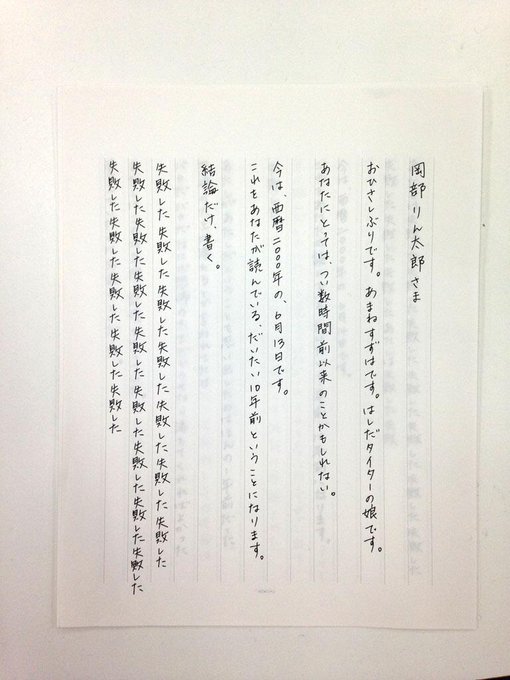 岡部りん太郎さま
おひさしぶりです。あまねすずはです。はしだタイターの娘です。
あなたにとっては、つい数時間前以来のことかもしれない。
今は、西暦二〇〇〇年の、6月13日です。
これをあなたが読んでいる、だいたい10年前ということになります。
結論だけ、書く。
失敗した失敗した失敗した失敗した失敗した失敗した失敗した
失敗した失敗した失敗した失敗した失敗した失敗した失敗した失敗した
失敗した失敗した失敗した失敗した失敗した